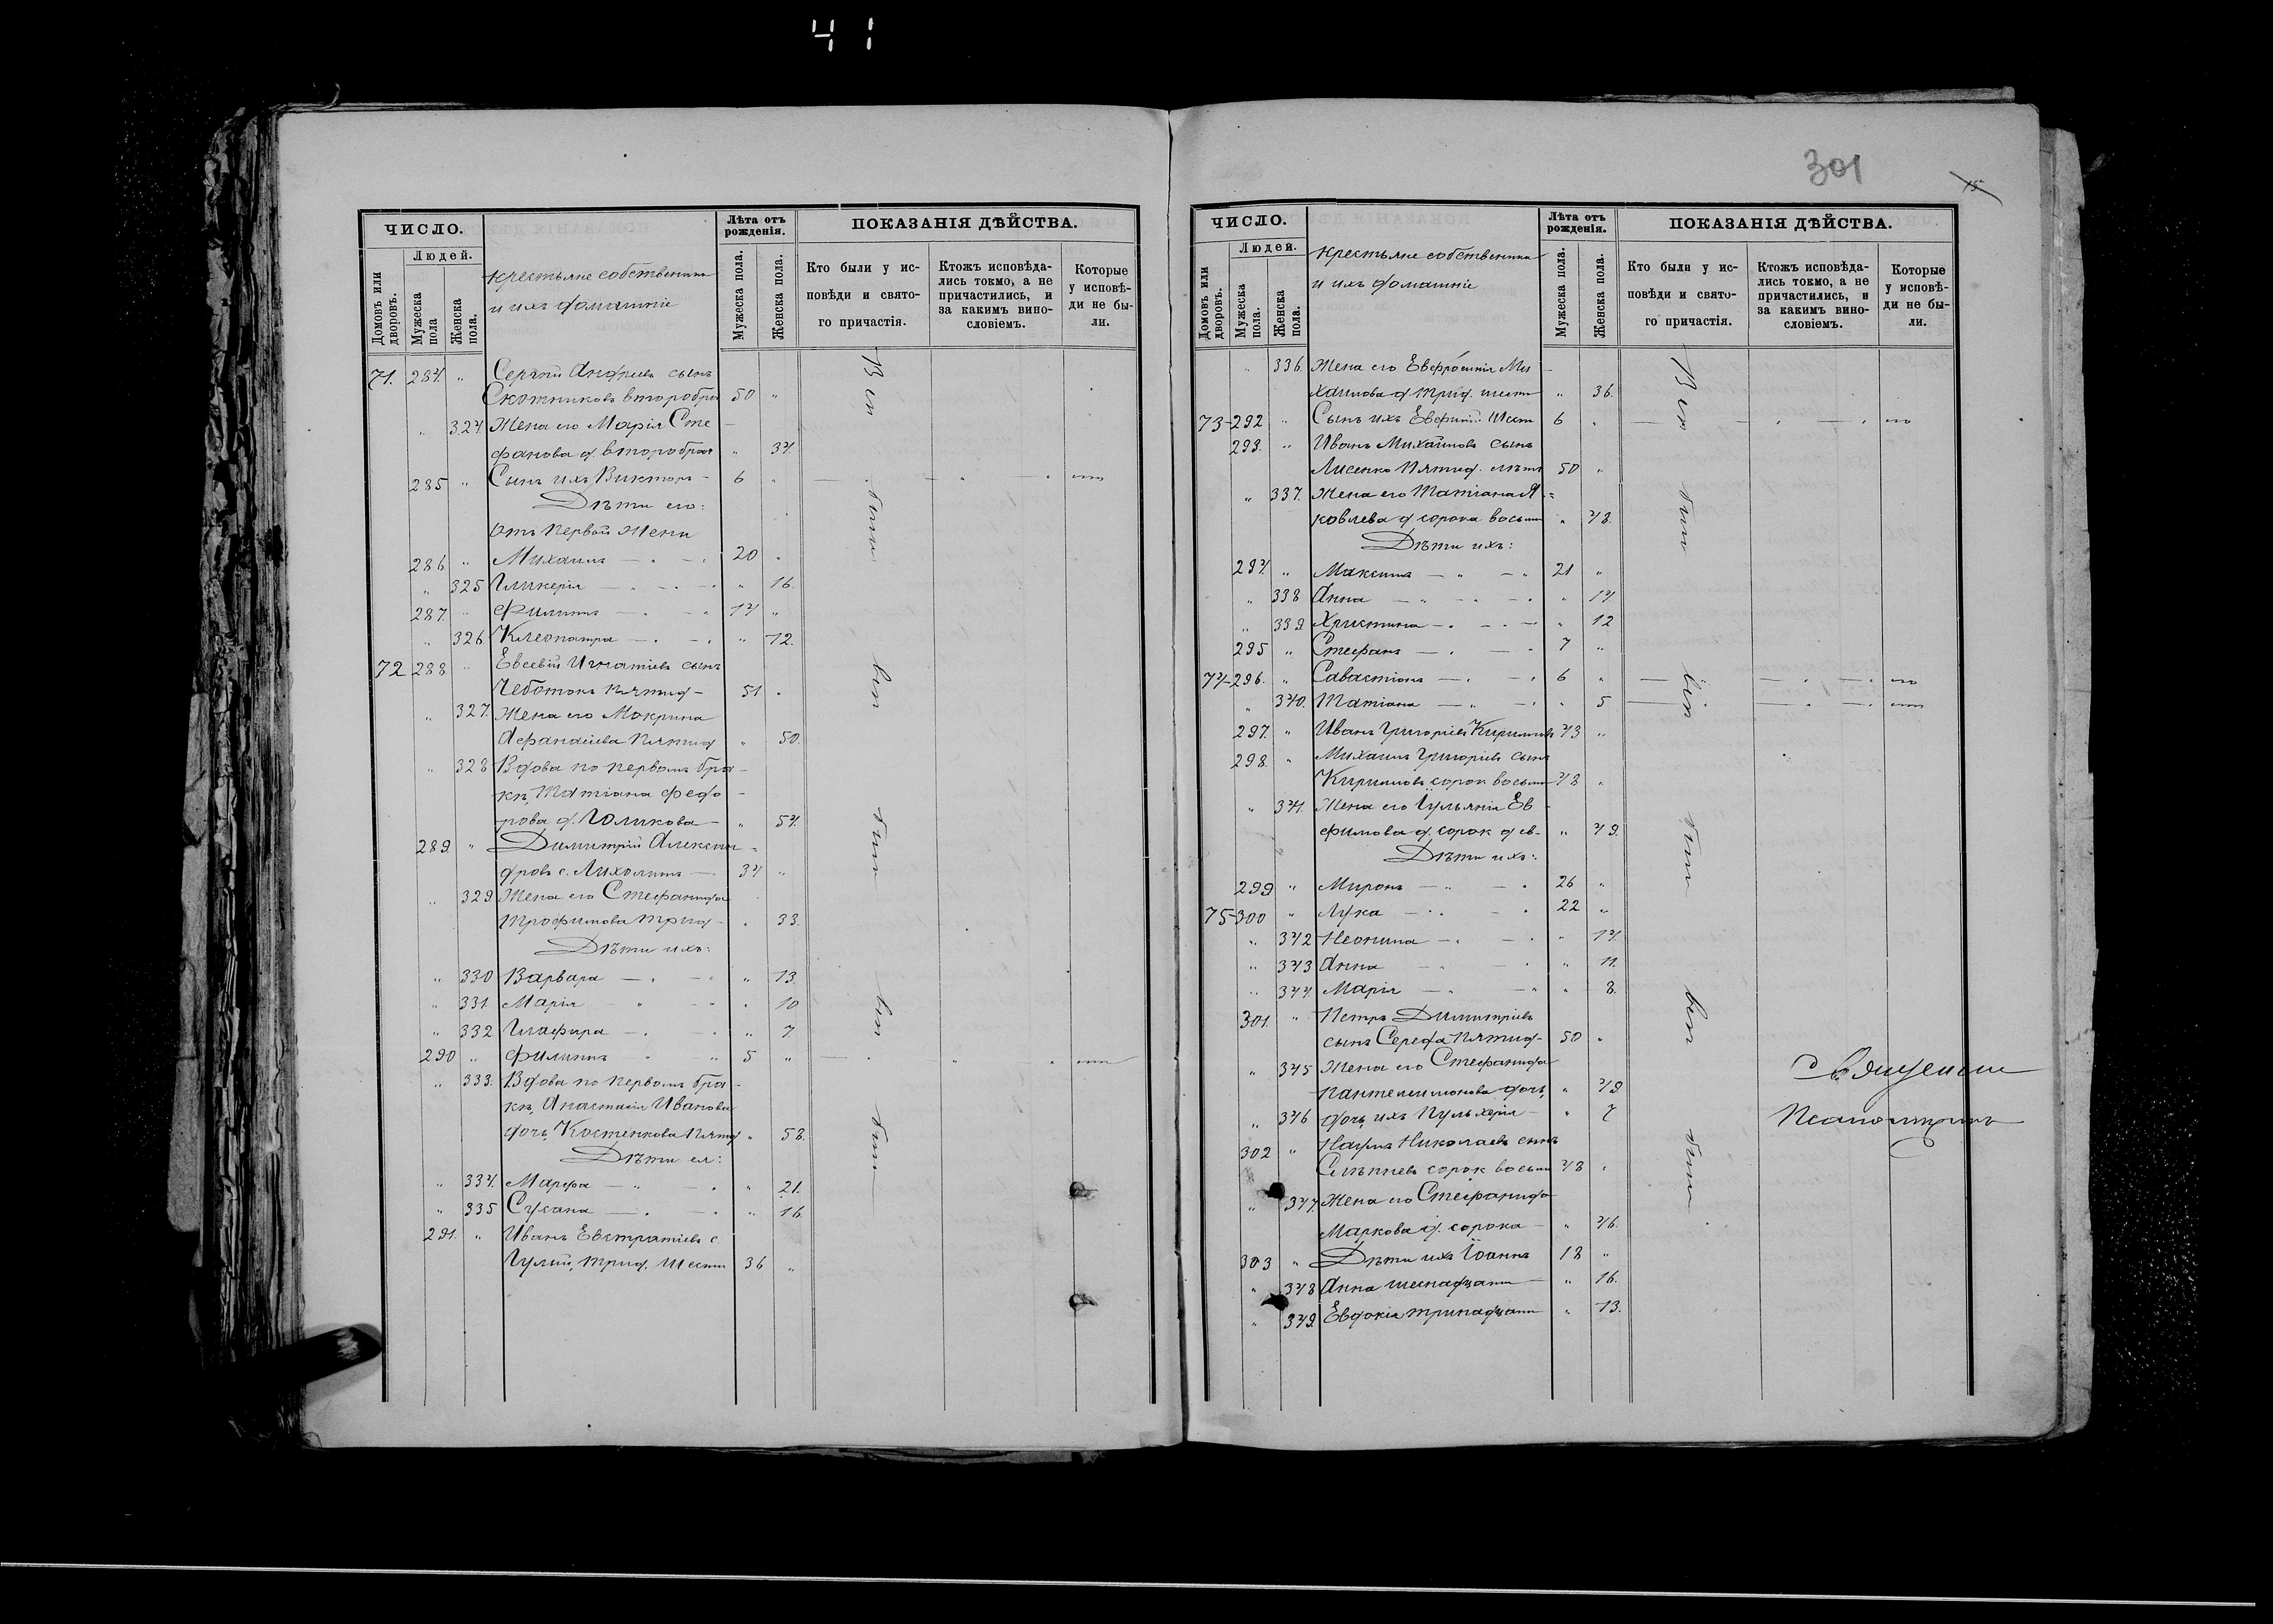 41
301
15
ЧИСЛО.
Людей.
Домовъ или дворовъ.
Мужеска пола
Женска пола.
Крестьяне собственики
и ихъ домашніе
Лѣта отъ рожденія.
Мужеска пола.
Женска пола.
ПОКАЗАНІЯ ДѢЙСТВА.
Кто были у ис-
повѣди и свято-
го причастія.
Ктожъ исповѣда-
лись токмо, а не
причастились, и
за какимъ вино-
словіемъ.
Которые
у исповѣ-
ди не бы-
ли.
71. 284. " Сергій Андреевъ сынъ
Скотниковъ второбра 50 "
" 324 Жена его Марія Сте-
фанова д. второбрач " 34.
285 " Сынъ ихъ Викторъ 6 "
Дѣти его:
Отъ первой жени
286 " Михаилъ 20 "
" 325 Гликерія " 16.
287. " Филиппъ 14 "
" 326 Клеопатра " 12.
72 288 " Евсевій Игнатіевъ сынъ
Чеботокъ пятид- 51 "
" 327. Жена его Мокрина
Афанасіева пятид " 50.
" 328 Вдова по первомъ бра-
кѣ, Татіана Федо-
рова д. Голикова " 54.
289. " Димитрій Алексан-
дровъ с. Лихолитъ 34 "
" 329. Жена его Стефанида
Трофимова трид- " 33.
Дѣти ихъ:
" 330 Варвара " 13.
" 331 Марія " 10
" 332 Глафира " 7.
290 " Филиппъ 5 "
" 333. Вдова по первомъ бра-
кѣ, Анастасія Иванова
дочь, Костенкова пятид " 58.
Дѣти ея:
" 334. Марфа " 21.
" 335 Сусана " 16
291. " Иванъ Евстратіевъ с.
Гулій, трид. шесть 36 "
Вси были вси были вси были
ЧИСЛО.
Людей.
Домовъ или дворовъ.
Мужеска пола.
Женска пола.
Крестьяне собственики
и ихъ домашніе
Лѣта отъ рожденія.
Мужеска пола.
Женска пола.
ПОКАЗАНІЯ ДѢЙСТВА.
Кто были у ис-
повѣди и свято-
го причастія.
Ктожъ исповѣда-
лись токмо, а не
причастились, и
за какимъ вино-
словіемъ.
Которые
у исповѣ-
ди не бы-
ли.
" 336. Жена его Евфросинія Ми-
хаилова д. трид. шесть " 36.
73- 292 " Сынъ ихъ Евфимій шест 6 "
293. " Иванъ Михайловъ сынъ
Лисенко пятид. лѣтъ 50 "
" 337. Жена его Татіана Я-
ковлева д сорока восьми " 48.
Дѣти ихъ:
294. " Максимъ 21 "
" 338 Анна " 14
" 339. Христина " 12
295 " Стефанъ 7 "
74- 296. " Савастіанъ 6 "
" 340. Татіана " 5
297. " Иванъ Григоріевъ Кириловъ 43 "
298. " Михаилъ Григоріевъ сынъ
Кириловъ сорок восьми 48 "
" 341. Жена его Іульянія Ев-
фимова д. сорок дев- " 49.
Дѣти ихъ:
299 " Миронъ 26 "
75- 300 " Лука 22 "
" 342 Неонила " 14.
" 343 Анна " 11.
" 344. Марія " 8.
301. " Петръ Димитріевъ
сынъ Середа пятид- 50 "
" 345 Жена его Стефанида
Пантелеимонова дочь, " 49.
" 346 дочь, ихъ Пульхерія " 7
302 " Наумъ Николаевъ сынъ
Слѣпневъ сорок восьми 48 "
" 347. Жена его Стефанида
Маркова д. сорока " 46.
303 " Дѣти ихъ Іоаннъ 18 "
" 348 Анна шеснадцати " 16.
" 349. Евдокія тринадцати " 13.
Вси были вси были вси были
Священни
Псаломщикъ